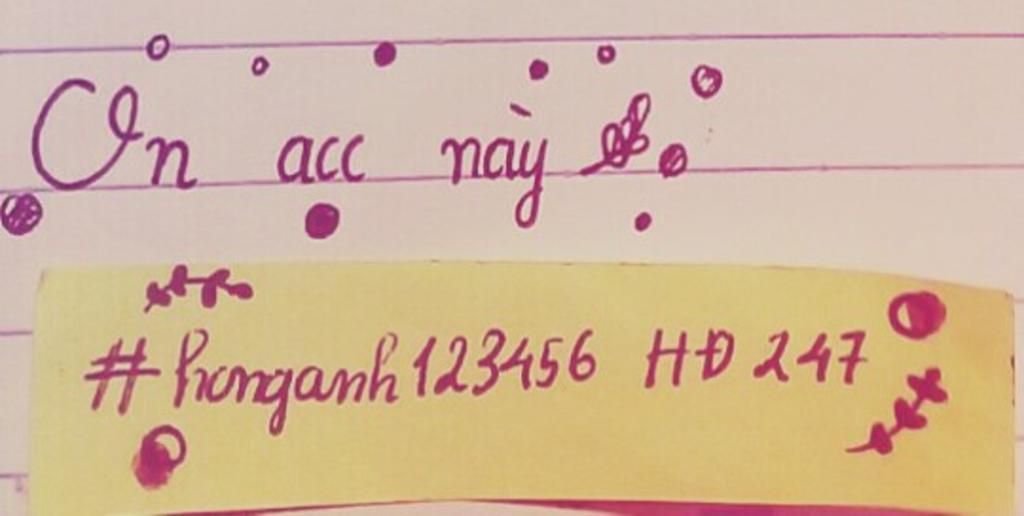 On acc này
#honganh123456 HĐ 247